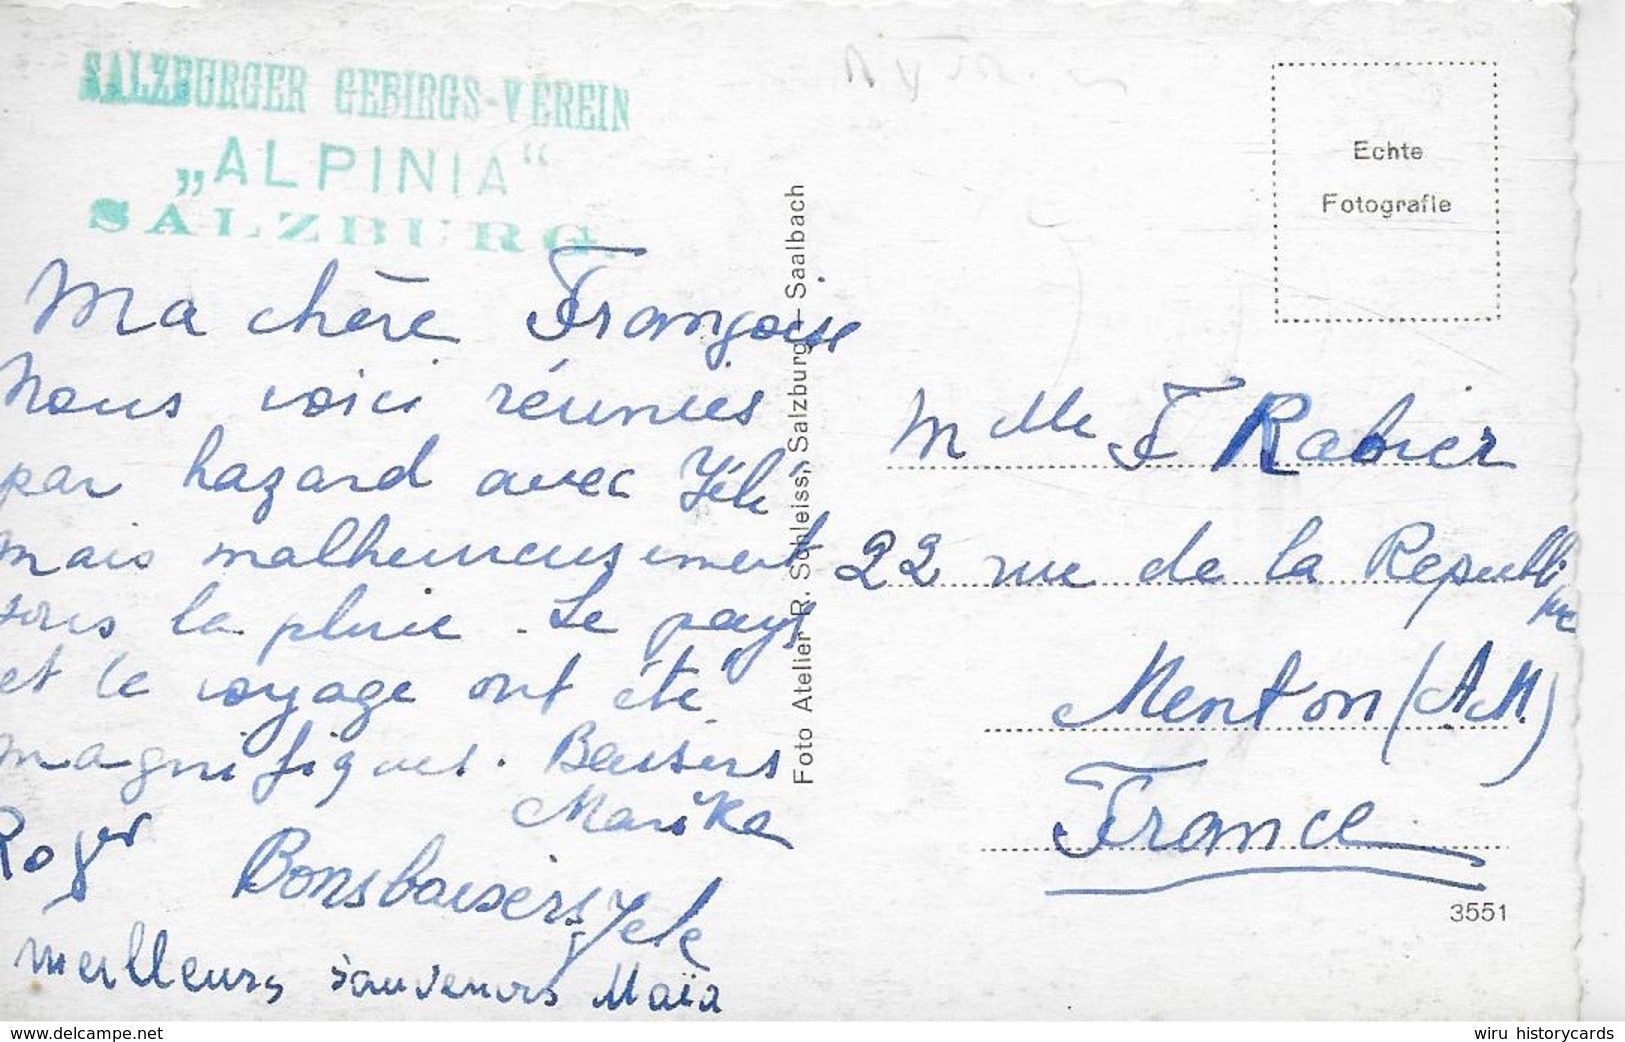 SALZBURGER GEBIRGS-VEREIN
„ALPINIA“
SALZBURG.
Ma chère Françoise
Nous voici réunies
par hazard avec
mais malheureusement
sous la pluie. Le pays
et le voyage ont été
magnifiques. Baisers
Marika
Roger
Bons baisers Jele
meilleurs souvenirs Maïa
Foto Atelier R. Schleiss, Salzburg - Saalbach
Echte
Fotografie
Mlle F Rabier
22 rue de la Republi
que
Menton (A.M.)
France
3551
delcampe.net
wiru historycards